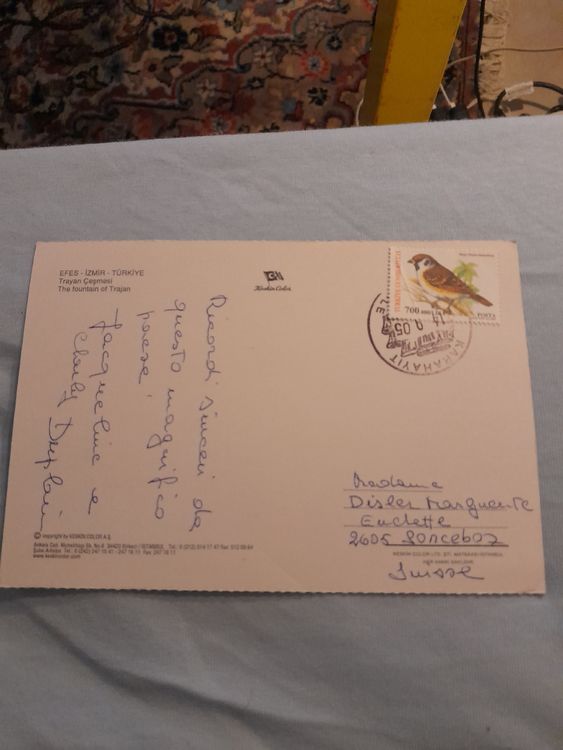 EFES - İZMİR - TÜRKİYE
Trayan Çeşmesi
The fountain of Trajan
Keskin Color
TÜRKİYE CUMHURİYETİ
700
POSTA
KARAHAYIT
05
Ricordi sinceri da
questo magnifico
paese,
Jacqueline e
Charly
Madame
Disler Marguerite
Euchette
2605 Sonceboz
Suisse
© copyright by KESKİN COLOR A.Ş.
Ankara Cad. No.
www.keskincolor.com
KESKİN COLOR LTD. ŞTİ. MATBAASI-İSTANBUL
HER HAKKI SAKLIDIR